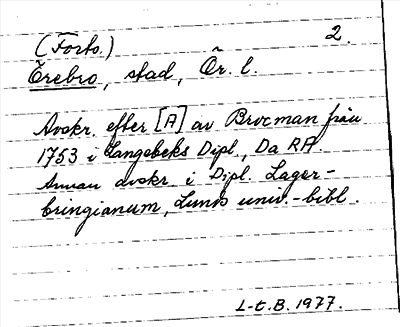 (Forts.) 2.
Örebro, stad, Ör. l.
Avskr. efter [A] av Brocman från
1753 i Langebeks Dipl., Da RA.
Annan avskr. i Dipl. Lager-
bringianum, Lunds univ.-bibl.
L-t. B. 1977.